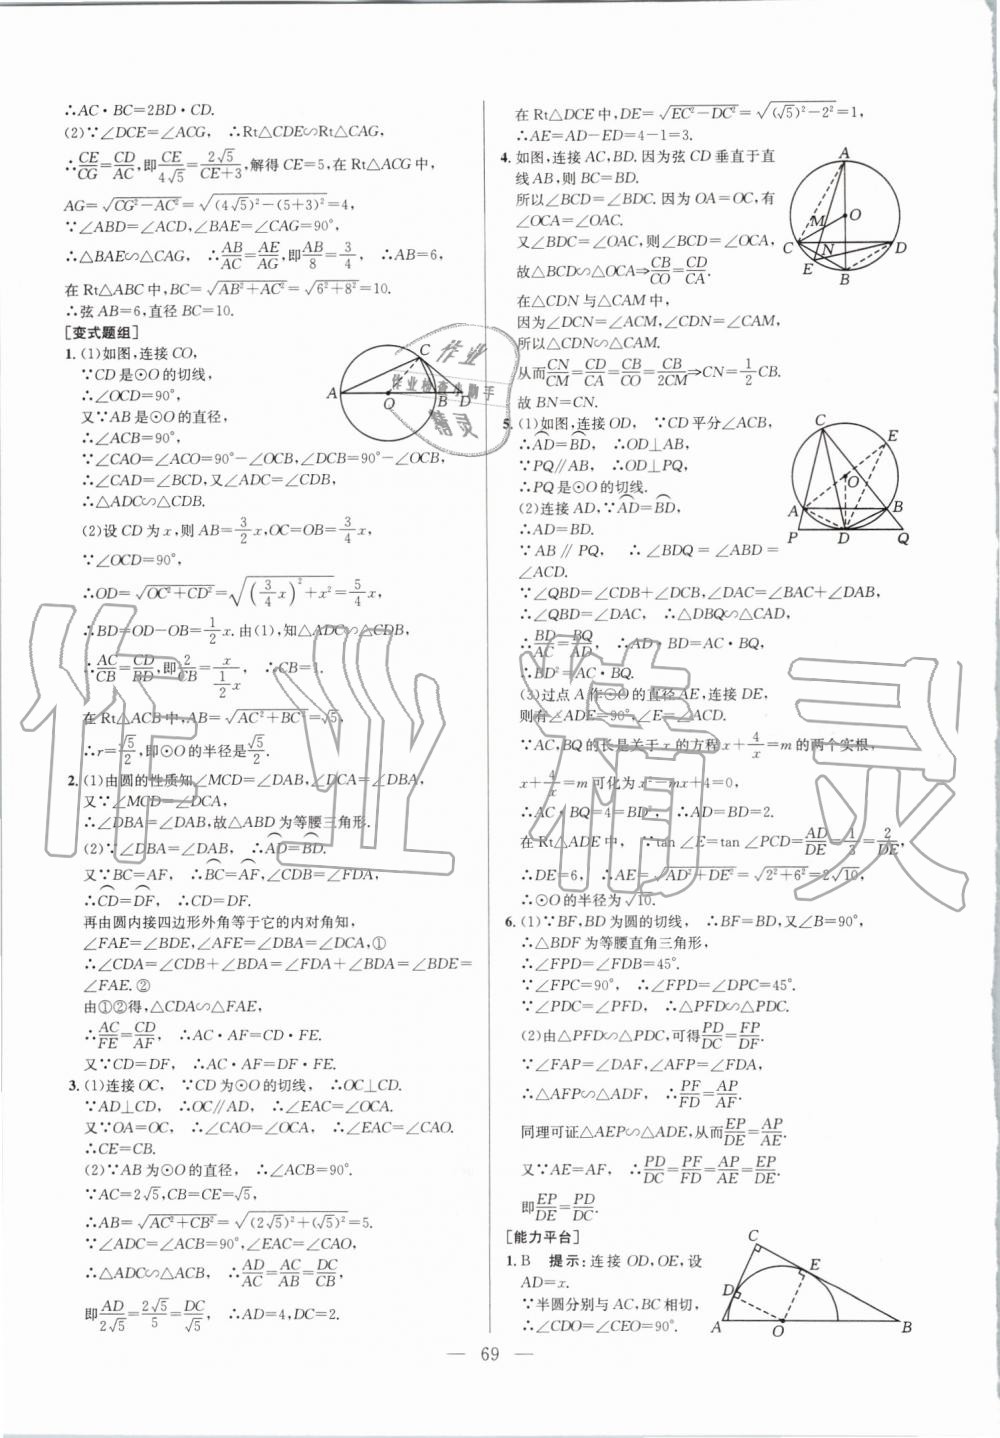 ∴AC·BC=2BD·CD.
(2)∵∠DCE=∠ACG, ∴Rt△CDE∽Rt△CAG,
∴CE/CG=CD/AC,即CE/4√5=2√5/(CE+3),解得CE=5,在Rt△ACG中,
AG=√(CG²-AC²)=√((4√5)²-(5+3)²)=4,
∵∠ABD=∠ACD,∠BAE=∠CAG=90°,
∴△BAE∽△CAG, ∴AB/AC=AE/AG,即AB/8=3/4, ∴AB=6,
在Rt△ABC中,BC=√(AB²+AC²)=√(6²+8²)=10.
∴弦AB=6,直径BC=10.
[变式题组]
1. (1)如图,连接CO,
∵CD是⊙O的切线,
∴∠OCD=90°,
又∵AB是⊙O的直径,
∴∠ACB=90°,
∵∠CAO=∠ACO=90°-∠OCB,∠DCB=90°-∠OCB,
∴∠CAD=∠BCD,又∠ADC=∠CDB,
∴△ADC∽△CDB.
(2)设CD为x,则AB=3/2x,OC=OB=3/4x,
∵∠OCD=90°,
∴OD=√(OC²+CD²)=√((3/4x)²+x²)=5/4x,
∴BD=OD-OB=1/2x.由(1),知△ADC∽△CDB,
∴AC/CB=CD/BD,即2/CB=x/(1/2x), ∴CB=1.
在Rt△ACB中,AB=√(AC²+BC²)=√5,
∴r=√5/2,即⊙O的半径是√5/2.
2. (1)由圆的性质知∠MCD=∠DAB,∠DCA=∠DBA,
又∵∠MCD=∠DCA,
∴∠DBA=∠DAB,故△ABD为等腰三角形.
(2)∵∠DBA=∠DAB, ∴AD=BD.
又∵BC=AF, ∴BC=AF,∠CDB=∠FDA,
∴CD=DF, ∴CD=DF.
再由圆内接四边形外角等于它的内对角知,
∠FAE=∠BDE,∠AFE=∠DBA=∠DCA,①
∴∠CDA=∠CDB+∠BDA=∠FDA+∠BDA=∠BDE=
∠FAE.②
由①②得,△CDA∽△FAE,
∴AC/FE=CD/AF, ∴AC·AF=CD·FE.
又∵CD=DF, ∴AC·AF=DF·FE.
3. (1)连接OC, ∵CD为⊙O的切线, ∴OC⊥CD.
∵AD⊥CD, ∴OC∥AD, ∴∠EAC=∠OCA.
又∵OA=OC, ∴∠CAO=∠OCA, ∴∠EAC=∠CAO.
∴CE=CB.
(2)∵AB为⊙O的直径, ∴∠ACB=90°.
∵AC=2√5,CB=CE=√5,
∴AB=√(AC²+CB²)=√((2√5)²+(√5)²)=5.
∵∠ADC=∠ACB=90°,∠EAC=∠CAO,
∴△ADC∽△ACB, ∴AD/AC=AC/AB=DC/CB,
即AD/2√5=2√5/5=DC/√5, ∴AD=4,DC=2.
在Rt△DCE中,DE=√(EC²-DC²)=√((√5)²-2²)=1,
∴AE=AD-ED=4-1=3.
4. 如图,连接AC,BD.因为弦CD垂直于直
线AB,则BC=BD.
所以∠BCD=∠BDC.因为OA=OC,有
∠OCA=∠OAC.
又∠BDC=∠OAC,则∠BCD=∠OCA,
故△BCD∽△OCA⇒CB/CO=CD/CA.
在△CDN与△CAM中,
因为∠DCN=∠ACM,∠CDN=∠CAM,
所以△CDN∽△CAM.
从而CN/CM=CD/CA=CB/CO=CB/2CM⇒CN=1/2CB.
故BN=CN.
5. (1)如图,连接OD, ∵CD平分∠ACB,
∴AD=BD, ∴OD⊥AB,
∵PQ∥AB, ∴OD⊥PQ,
∴PQ是⊙O的切线.
(2)连接AD,∵AD=BD,
∴AD=BD.
∵AB∥PQ, ∴∠BDQ=∠ABD=
∠ACD.
∵∠QBD=∠CDB+∠DCB,∠DAC=∠BAC+∠DAB,
∴∠QBD=∠DAC, ∴△DBQ∽△CAD,
∴BD/AC=BQ/AD, ∴AD·BD=AC·BQ,
∴BD²=AC·BQ.
(3)过点A作⊙O的直径AE,连接DE,
则有∠ADE=90°,∠E=∠ACD.
∵AC,BQ的长是关于x的方程x+4/x=m的两个实根,
x+4/x=m可化为x²-mx+4=0,
∴AC·BQ=4=BD², ∴AD=BD=2.
在Rt△ADE中, ∵tan∠E=tan∠PCD=AD/DE=1/3=2/DE,
∴DE=6, ∴AE=√(AD²+DE²)=√(2²+6²)=2√10,
∴⊙O的半径为√10.
6. (1)∵BF,BD为圆的切线, ∴BF=BD,又∠B=90°,
∴△BDF为等腰直角三角形,
∴∠FPD=∠FDB=45°.
∵∠FPC=90°, ∴∠FPD=∠DPC=45°.
∵∠PDC=∠PFD, ∴△PFD∽△PDC.
(2)由△PFD∽△PDC,可得PD/DC=FP/DF.
∵∠FAP=∠DAF,∠AFP=∠FDA,
∴△AFP∽△ADF, ∴PF/FD=AP/AF.
同理可证△AEP∽△ADE,从而EP/DE=AP/AE.
又∵AE=AF, ∴PD/DC=PF/FD=AP/AE=EP/DE.
即EP/DE=PD/DC.
[能力平台]
1. B 提示:连接OD,OE,设
AD=x.
∵半圆分别与AC,BC相切,
∴∠CDO=∠CEO=90°.
A
O
B
D
C
A
M
O
C
N
D
E
B
C
E
O
A
B
P
D
Q
C
E
D
A
O
B
作业
作业检查小助手
精灵
作业精灵
69